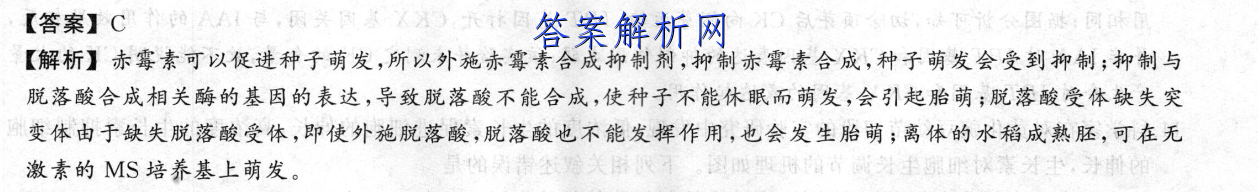 【答案】C
答案解析网
【解析】赤霉素可以促进种子萌发,所以外施赤霉素合成抑制剂,抑制赤霉素合成,种子萌发会受到抑制;抑制与
脱落酸合成相关酶的基因的表达,导致脱落酸不能合成,使种子不能休眠而萌发,会引起胎萌;脱落酸受体缺失突
变体由于缺失脱落酸受体,即使外施脱落酸,脱落酸也不能发挥作用,也会发生胎萌;离体的水稻成熟胚,可在无
激素的 MS 培养基上萌发。